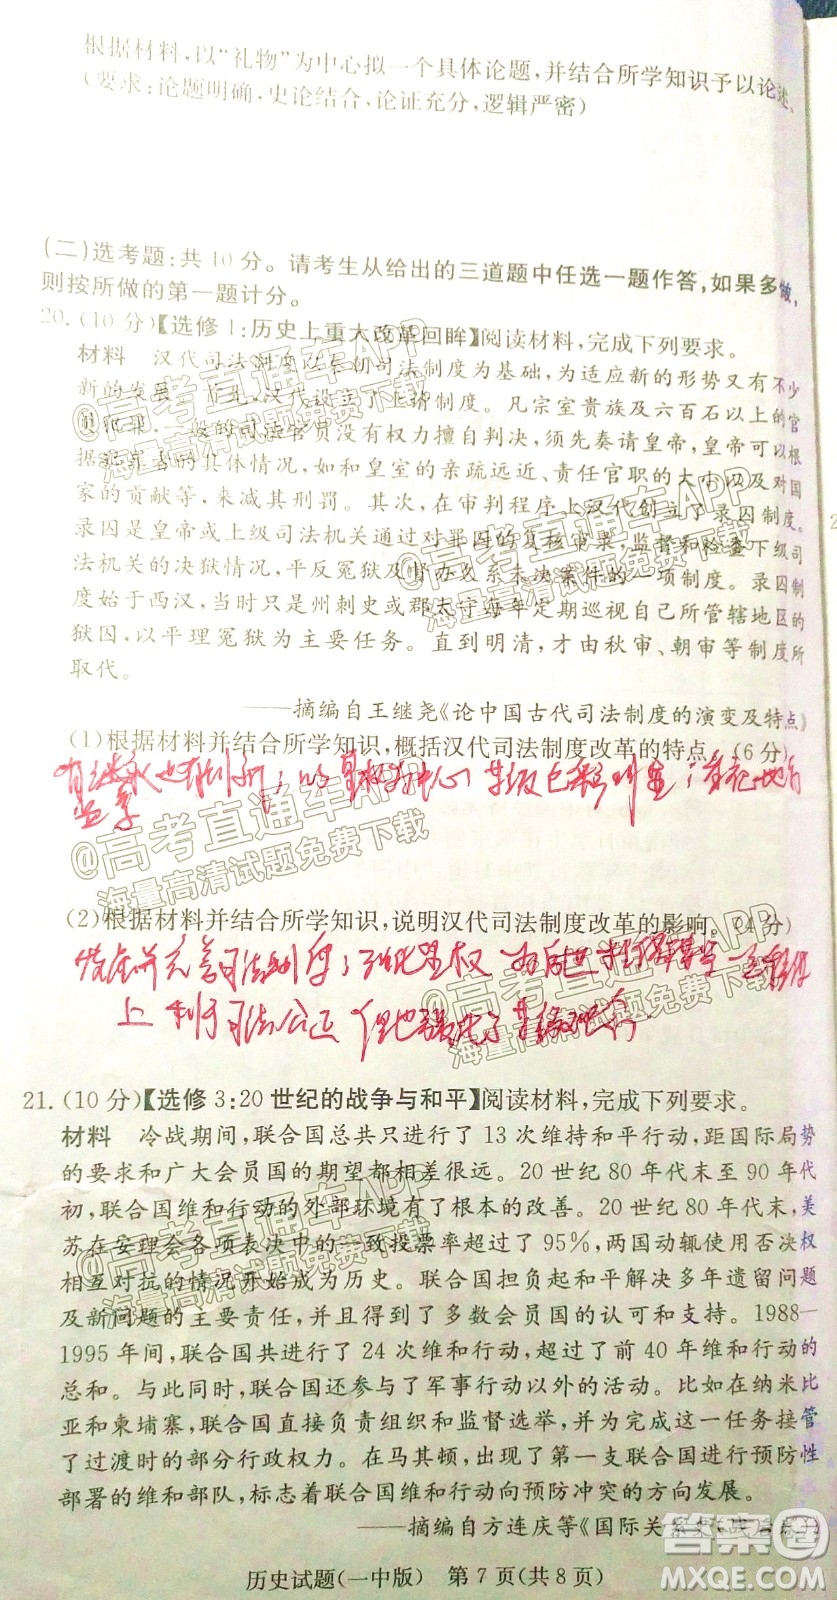 根据材料,以“礼物”为中心拟一个具体论题,并结合所学知识予以论述。
(要求:论题明确,史论结合,论证充分,逻辑严密)
(二)选考题:共10分。请考生从给出的三道题中任选一题作答,如果多做,
则按所做的第一题计分。
20.(10分)【选修1:历史上重大改革回眸】阅读材料,完成下列要求。
材料 汉代司法制度以秦朝司法制度为基础,为适应新的形势又有不少
新的发展。首先,汉代设立了上请制度。凡宗室贵族及六百石以上的官
员犯罪,一般的司法官员没有权力擅自判决,须先奏请皇帝,皇帝可以根
据犯罪当的具体情况,如和皇室的亲疏远近、责任官职的大小以及对国
家的贡献等,来减其刑罚。其次,在审判程序上汉代创立了录囚制度。
录囚是皇帝或上级司法机关通过对罪囚的复核审录,监督和检查下级司
法机关的决狱情况,平反冤狱及督办久系未决案件的一项制度。录囚制
度始于西汉,当时只是州刺史或郡太守每年定期巡视自己所管辖地区的
狱囚,以平理冤狱为主要任务。直到明清,才由秋审、朝审等制度所
取代。
——摘编自王继尧《论中国古代司法制度的演变及特点》
(1)根据材料并结合所学知识,概括汉代司法制度改革的特点。(6分)
(2)根据材料并结合所学知识,说明汉代司法制度改革的影响。(4分)
上 利于司法公正 但也强化了等级
21.(10分)【选修3:20世纪的战争与和平】阅读材料,完成下列要求。
材料 冷战期间,联合国总共只进行了13次维持和平行动,距国际局势
的要求和广大会员国的期望都相差很远。20世纪80年代末至90年代
初,联合国维和行动的外部环境有了根本的改善。20世纪80年代末,美
苏在安理会各项表决中的一致投票率超过了95%,两国动辄使用否决权
相互对抗的情况开始成为历史。联合国担负起和平解决多年遗留问题
及新问题的主要责任,并且得到了多数会员国的认可和支持。1988-
1995年间,联合国共进行了24次维和行动,超过了前40年维和行动的
总和。与此同时,联合国还参与了军事行动以外的活动。比如在纳米比
亚和柬埔寨,联合国直接负责组织和监督选举,并为完成这一任务接管
了过渡时的部分行政权力。在马其顿,出现了第一支联合国进行预防性
部署的维和部队,标志着联合国维和行动向预防冲突的方向发展。
——摘编自方连庆等《国际关系史
历史试题(一中版) 第7页(共8页)
@高考直通车APP
海量高清试题免费下载
@高考直通车APP
海量高清试题免费下载
@高考直通车APP
海量高清试题免费下载
@高考直通车APP
海量高清试题免费下载
@高考直通车APP
海量高清试题免费下载
答案圈
MXQE.COM